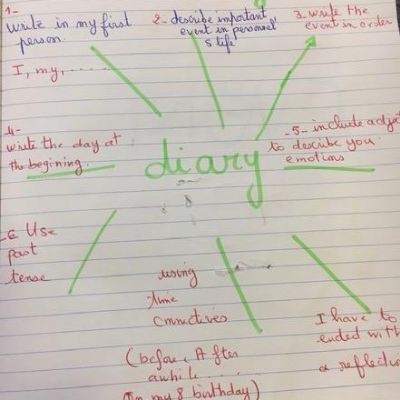 1-
write in my first
person.
I, my,......
2- describe important
event in personnel
s life
3- write the
event in order
4-
write the day at
the begining.
diary
-5- include adject
to describe you
emotions
6 Use
past
tense
using
time
connectives
(before, After
awhile......
on my 8 birthday)
I have to
ended with
a reflectio